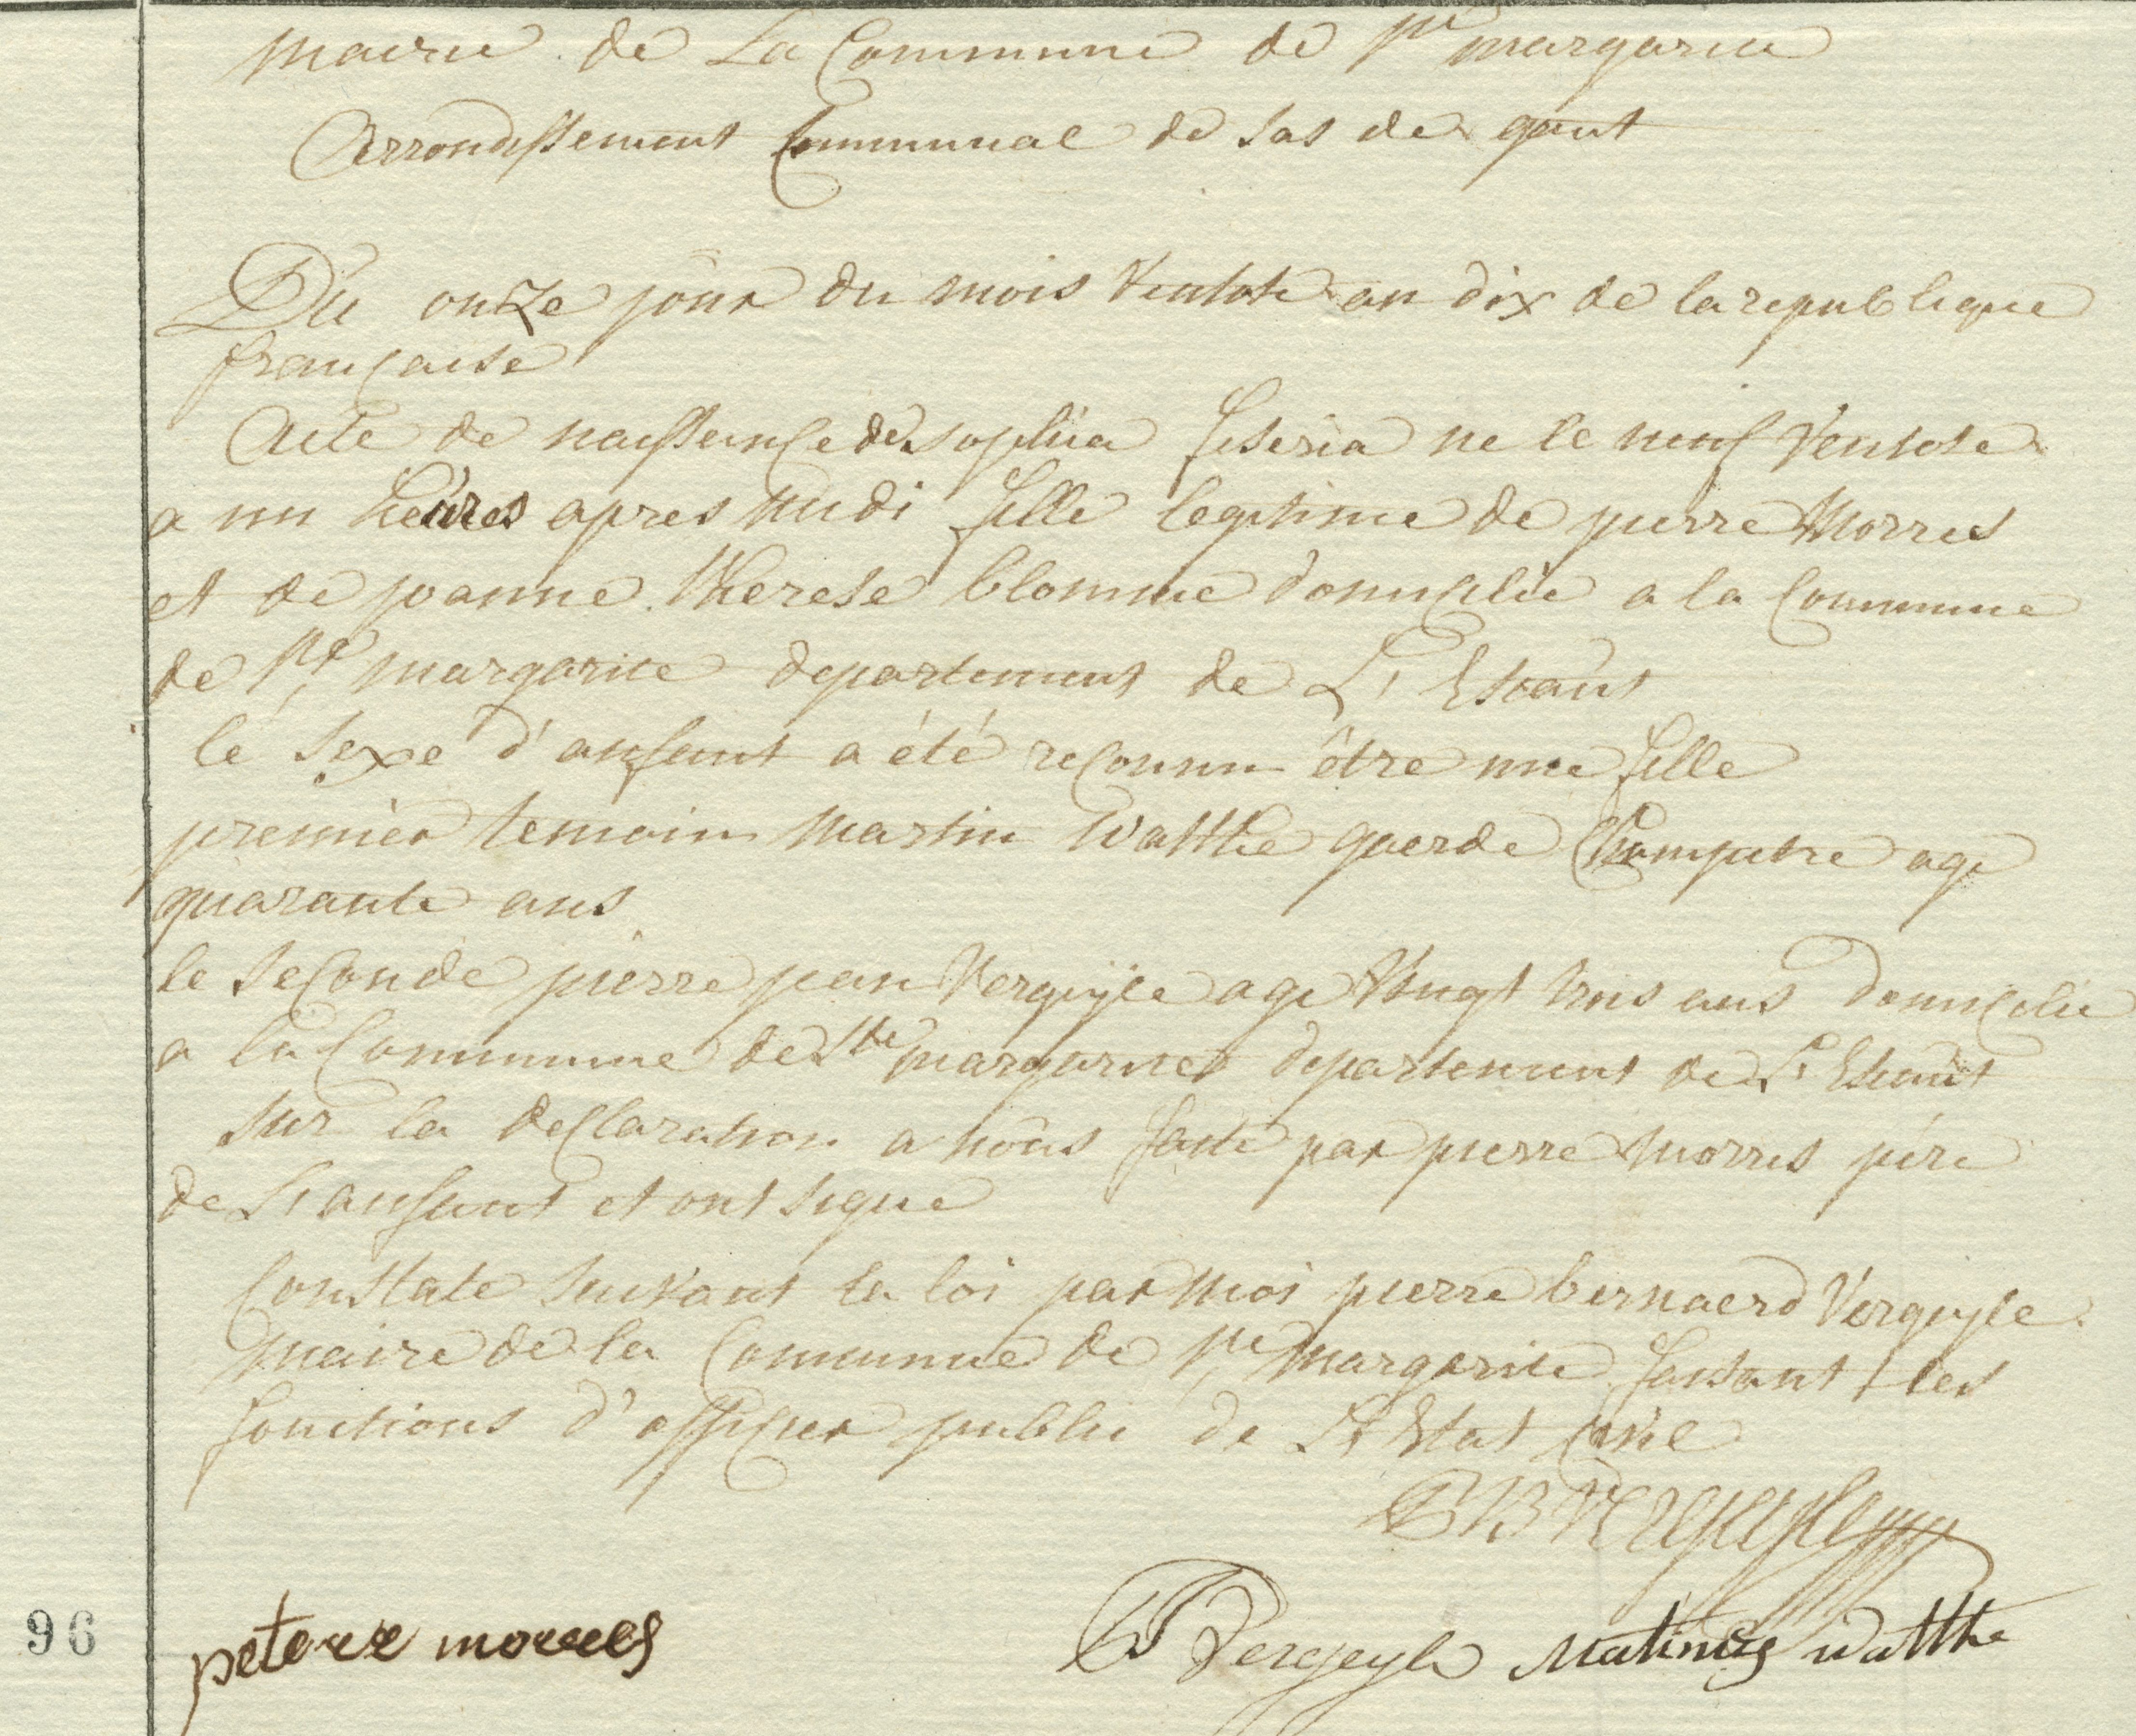 Mairie de La Commune de Ste margarite
Arrondissement Communal de Sas de gant
Du onze jour du mois Ventose an dix de la republique
française
Acte de naissance de sophia ne le neuf Ventose
a un heures apres midi fille legitime de pierre Morres
et de joanne therese blomme domicilie a la Commune
de Ste margarite departement de L'Escaut
le sexe d'anfant a été reconnu être une fille
premier temoin Martin Watthe guerde Champetre age
quarante ans
le seconde pierre jean Vergeyle age Vingt trois ans domicilie
a la Commune de Ste margarite departement de L'Escaut
sur la declaration a nous faite par pierre morres père
de L'anfant et ont signe
Constate suivant la loi par Moi pierre bernaerd Vergeyle
maire de la Commune de Ste margarite faisant les
fonctions d'officier public de L'Etat Civil
PB Vergeyle
96 peter morres PJ Vergeyle Matinus watthe